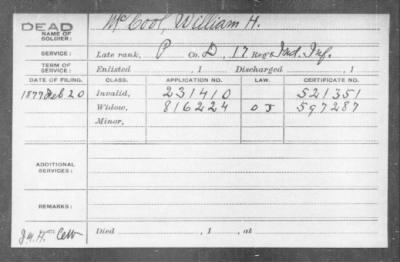 DEAD
NAME OF SOLDIER: McCool, William H.
SERVICE: Late rank, P Co. D, 17 Reg't Ind. Inf.
TERM OF SERVICE: Enlisted , 1 Discharged , 1
DATE OF FILING. CLASS. APPLICATION NO. LAW. CERTIFICATE NO.
1877 Feb 20 Invalid, 231410 521351
Widow, 816224 O J 597287
Minor,
ADDITIONAL SERVICES:
REMARKS:
Died , 1 , at